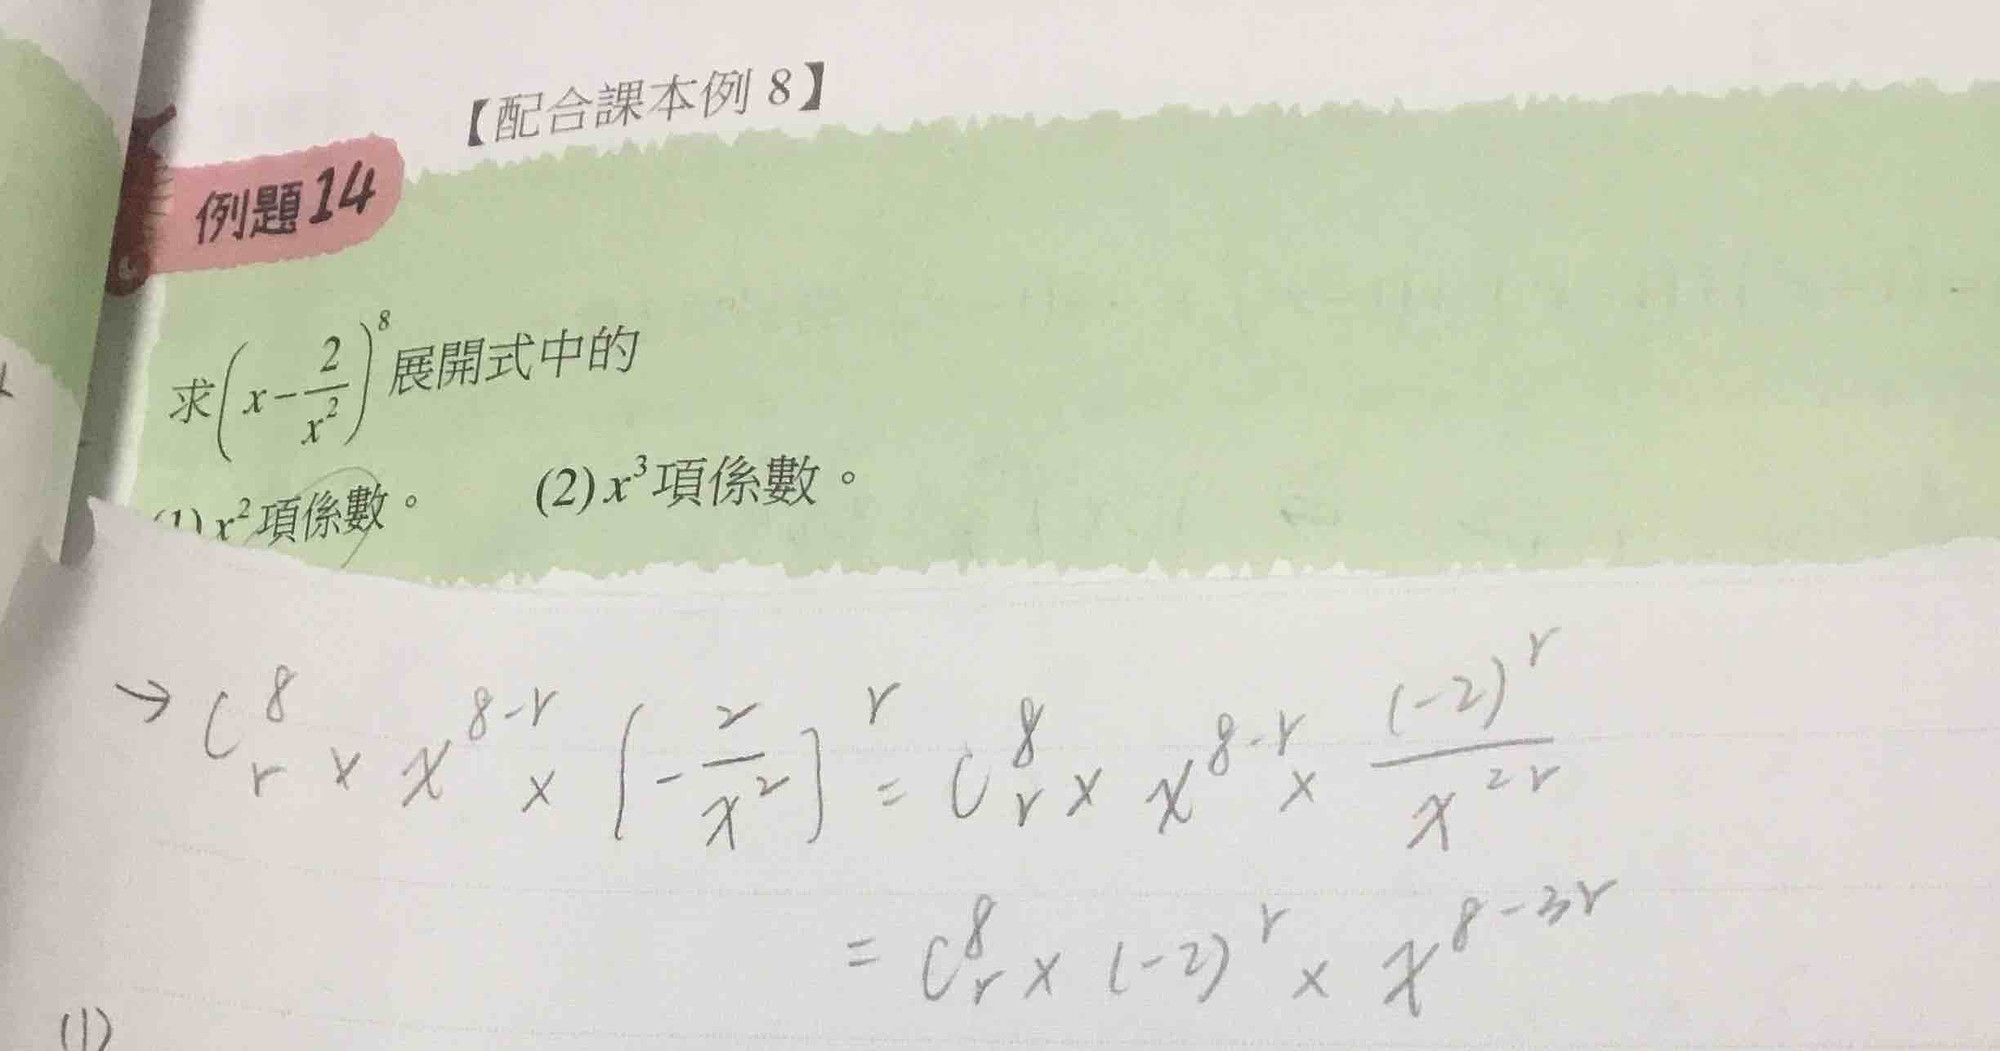 【配合課本例 8】
例題14
求(x-2/x²)⁸展開式中的
(1) x²項係數。 (2) x³項係數。
→ C⁸ᵣ × x⁸⁻ʳ × [-2/x²]ʳ = C⁸ᵣ × x⁸⁻ʳ × (-2)ʳ/x²ʳ
= C⁸ᵣ × (-2)ʳ × x⁸⁻³ʳ
(1)